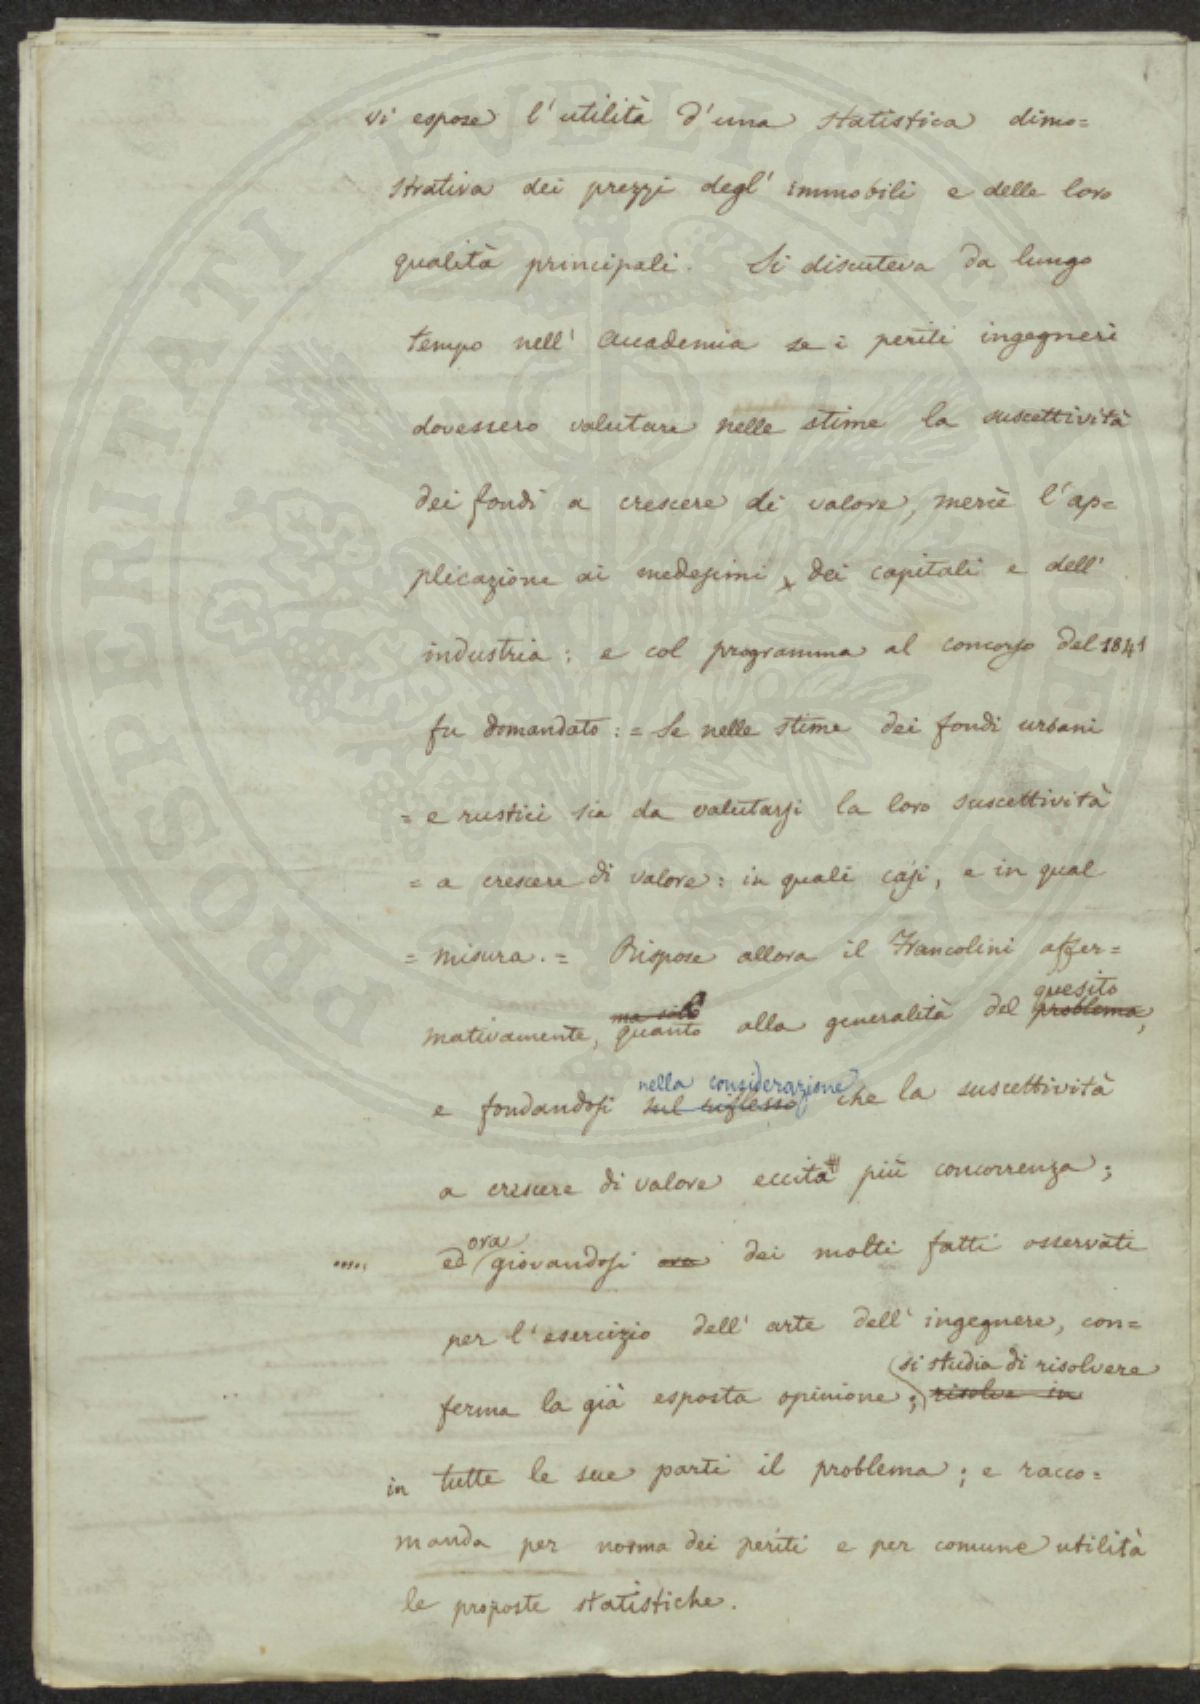 vi espose l'utilità d'una statistica dimo=
strativa dei prezzi degl'immobili e delle loro
qualità principali. Si discuteva da lungo
tempo nell'Accademia se i periti ingegneri
dovessero valutare nelle stime la suscettività
dei fondi a crescere di valore, mercè l'ap=
plicazione ai medesimi, dei capitali e dell'
industria: e col programma al concorso del 1841
fu domandato: = Se nelle stime dei fondi urbani
= e rustici sia da valutarsi la loro suscettività
= a crescere di valore: in quali casi, e in qual
= misura. = Rispose allora il Francolini affer=
quesito
ma solo
mativamente, quanto alla generalità del problema,
nella considerazione
e fondandosi sul riflesso che la suscettività
a crescere di valore eccita più concorrenza;
ora
ed giovandosi ora dei molti fatti osservati
per l'esercizio dell'arte dell'ingegnere, con=
si studia di risolvere
ferma la già esposta opinione; risolve in
in tutte le sue parti il problema; e racco=
manda per norma dei periti e per comune utilità
le proposte statistiche.
PROSPERITATI PUBLICAE AUGENDAE